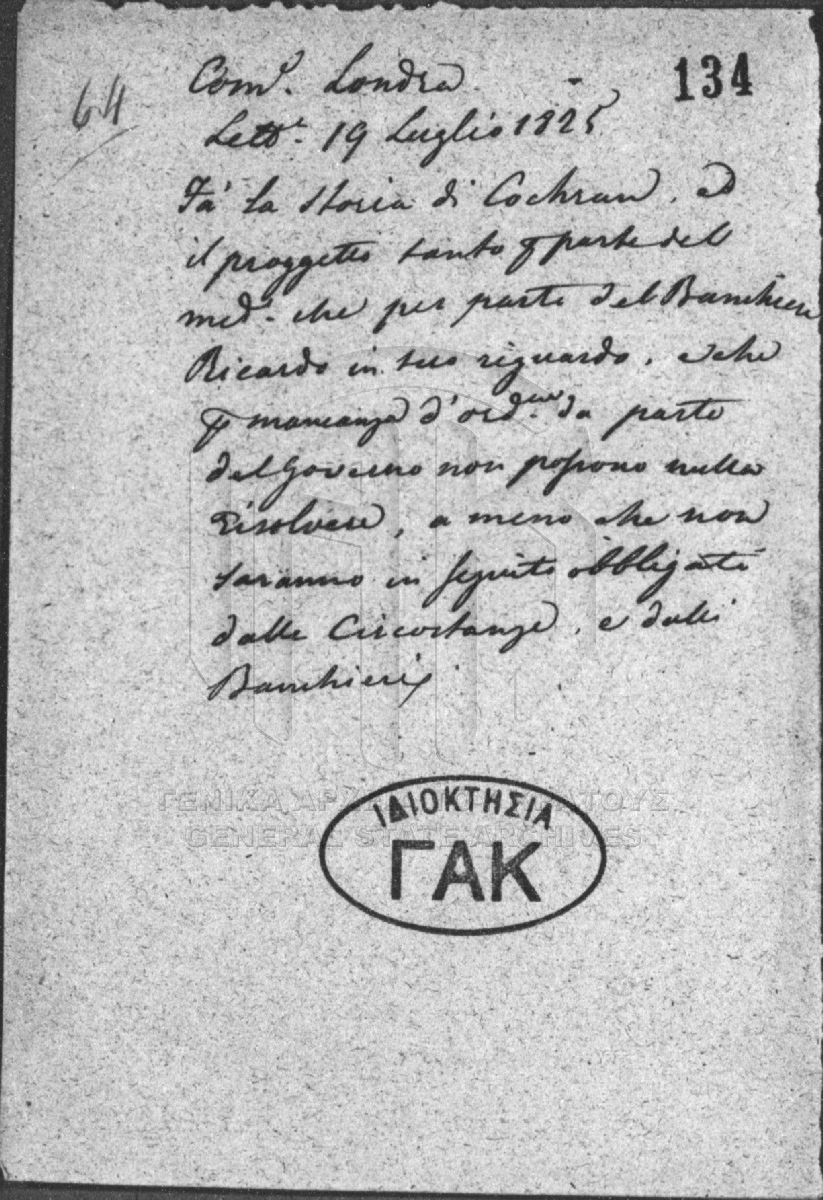 64
134
Com.e Londra
Lett.a 19 Luglio 1825
Fà la storia di Cochran, ed
il proggetto tanto p parte del
med.o che per parte del Banchiere
Ricardo in suo riguardo, e che
p mancanza d'ord.ine da parte
del Governo non possono nulla
risolvere, a meno che non
saranno in seguito obbligati
dalle Circostanze, e dalli
Banchieri
ΓΕΝΙΚΑ ΑΡΧΕΙΑ ΤΟΥ ΚΡΑΤΟΥΣ
GENERAL STATE ARCHIVES
ΙΔΙΟΚΤΗΣΙΑ
ΓΑΚ